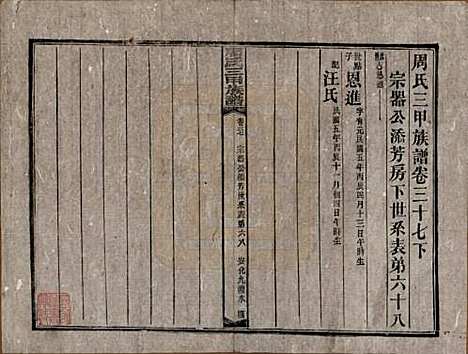 周氏三甲族譜卷三十七下
宗器公添芳房下世系表第六十八
恩進
字有元民國五年丙辰四月十三日午時生
配
汪氏
民國五年丙辰十一月初四日午時生
周氏三甲族譜
宗器公添芳世系表第六八